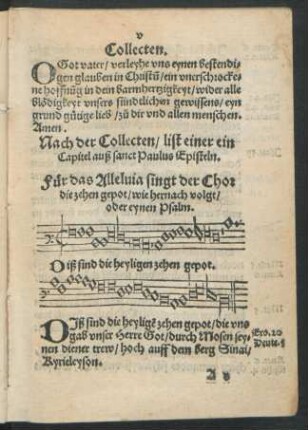 v
Collecten.
O Got vater/ verleyhe vns eynen bestendi-
gen glauben in Christū/ ein vnerschrocke-
ne hoffnūg in dein barmhertzigkeyt/ wider alle
blödigkeyt vnsers sündtlichen gewissens/ eyn
grund gütige lieb/ zů dir vnd allen menschen.
Amen.
Nach der Collecten/ list einer ein
Capitel auß sanct Paulus Episteln.
Für das Alleluia singt der Chor
die zehen gepot/ wie hernach volgt/
oder eynen Psalm.
Diß sind die heyligen zehen gepot.
Diß sind die heyligē zehen gepot/ die vns
gab vnser Herre Got/ durch Mosen sey-
nen diener trew/ hoch auff dem berg Sinai/
Kyrieleyson.
Exo. 20
Deute. 5
A v